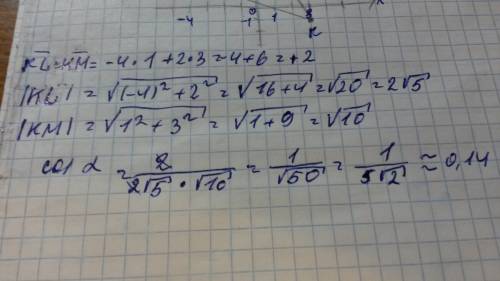 -4 -1 0 1 x
K
KL̅·KM̅ = -4·1+2·3 = 4+6 = +2
|KL| = √((-4)²+2²) = √(16+4) = √20 = 2√5
|KM| = √(1²+3²) = √(1+9) = √10
cos α = 2/(2√5 · √10) = 1/√50 = 1/(5√2) ≈ 0,14